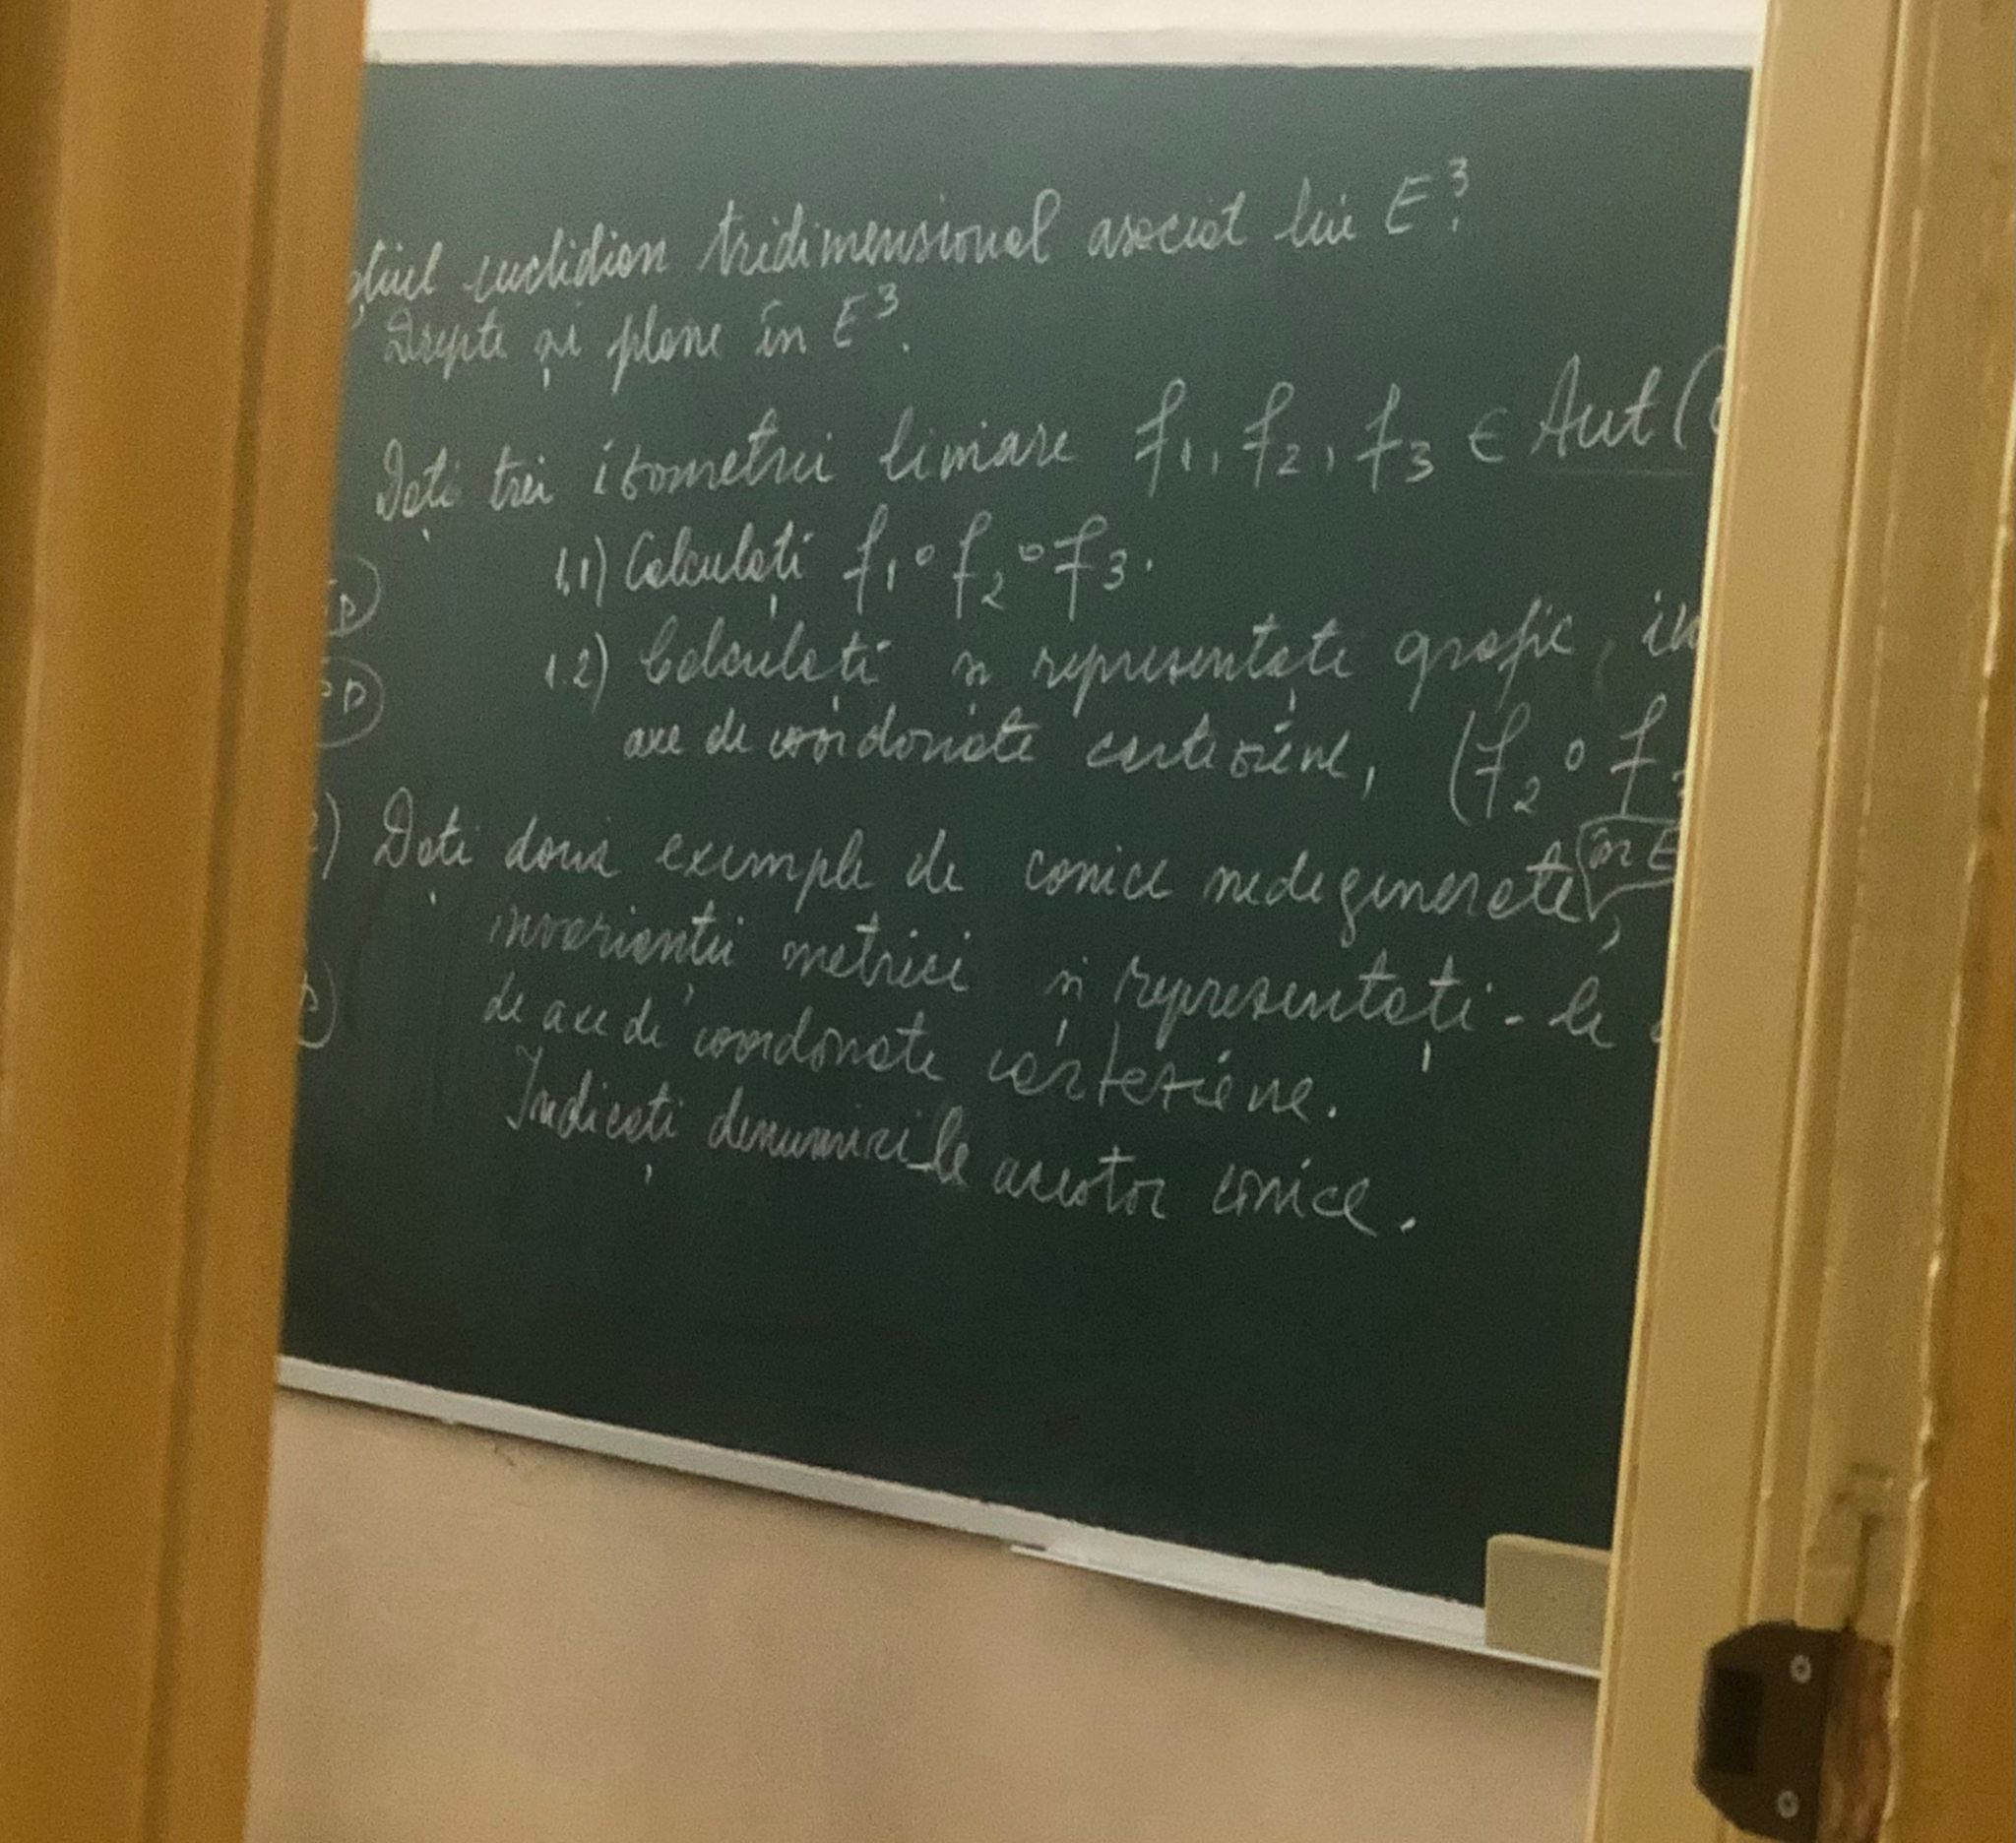 țiul euclidian tridimensional asociat lui E³.
Drepte și plane în E³.
Dați trei izometrii liniare f₁, f₂, f₃ ∈ Aut(
p
1.1) Calculați f₁ ∘ f₂ ∘ f₃.
p
1.2) Calculați și reprezentați grafic,
axe de coordonate carteziene, (f₂ ∘ f
) Dați două exemple de conice nedegenerate, în E
invarianții metrici și reprezentați-le
de axe de coordonate carteziene.
Indicați denumirile acestor conice.